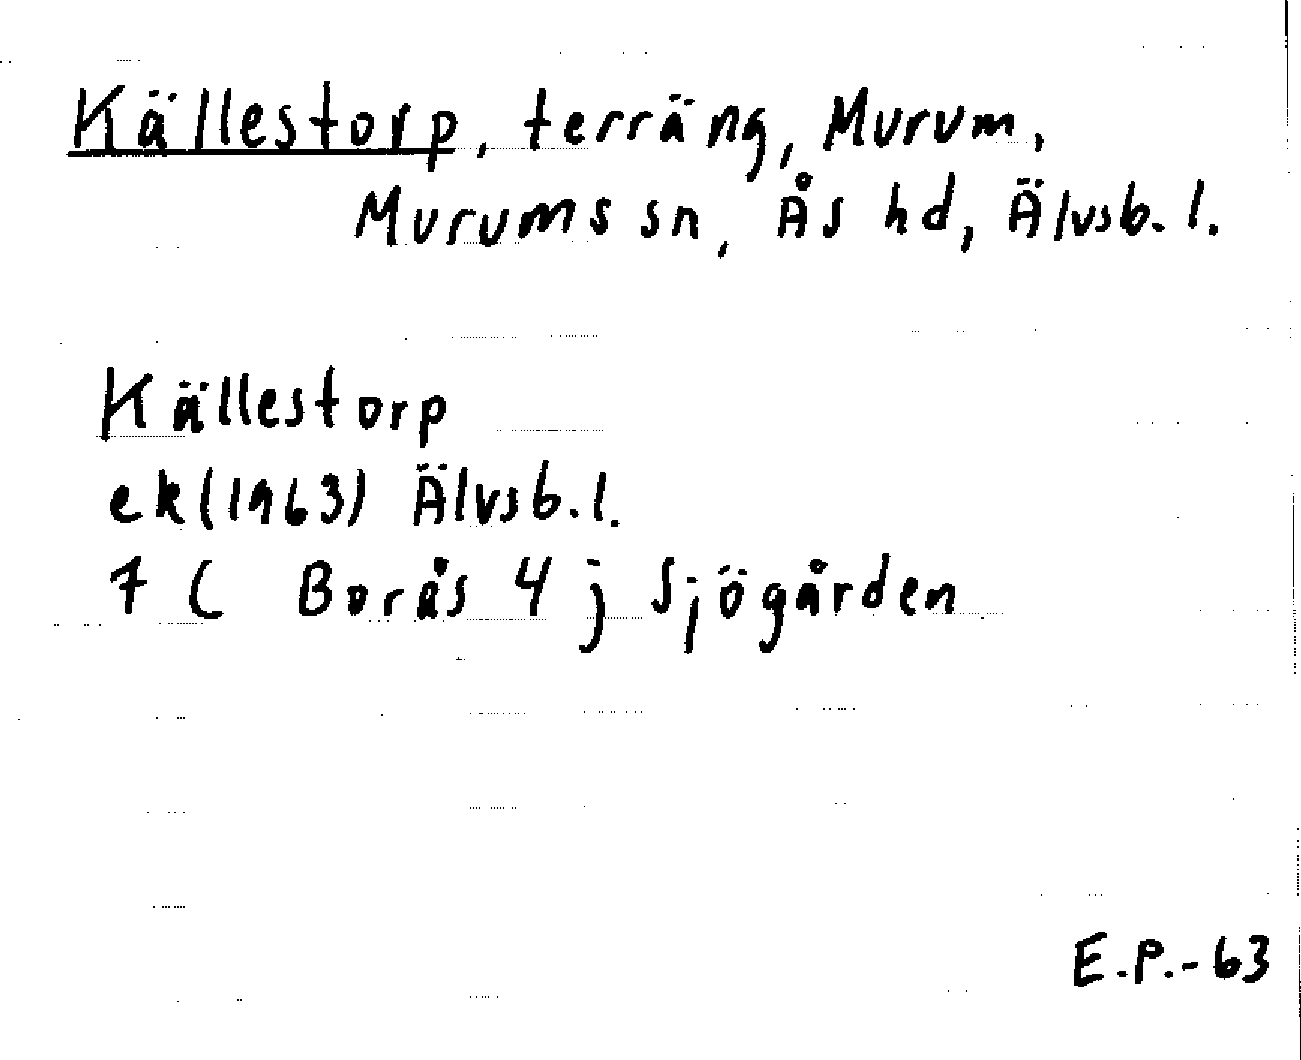 Källestorp, terräng, Murum,
Murums sn, Ås hd, Älvsb. l.
Källestorp
ek (1963) Älvsb. l.
7 C Borås 4 j Sjögården
E.P.-63